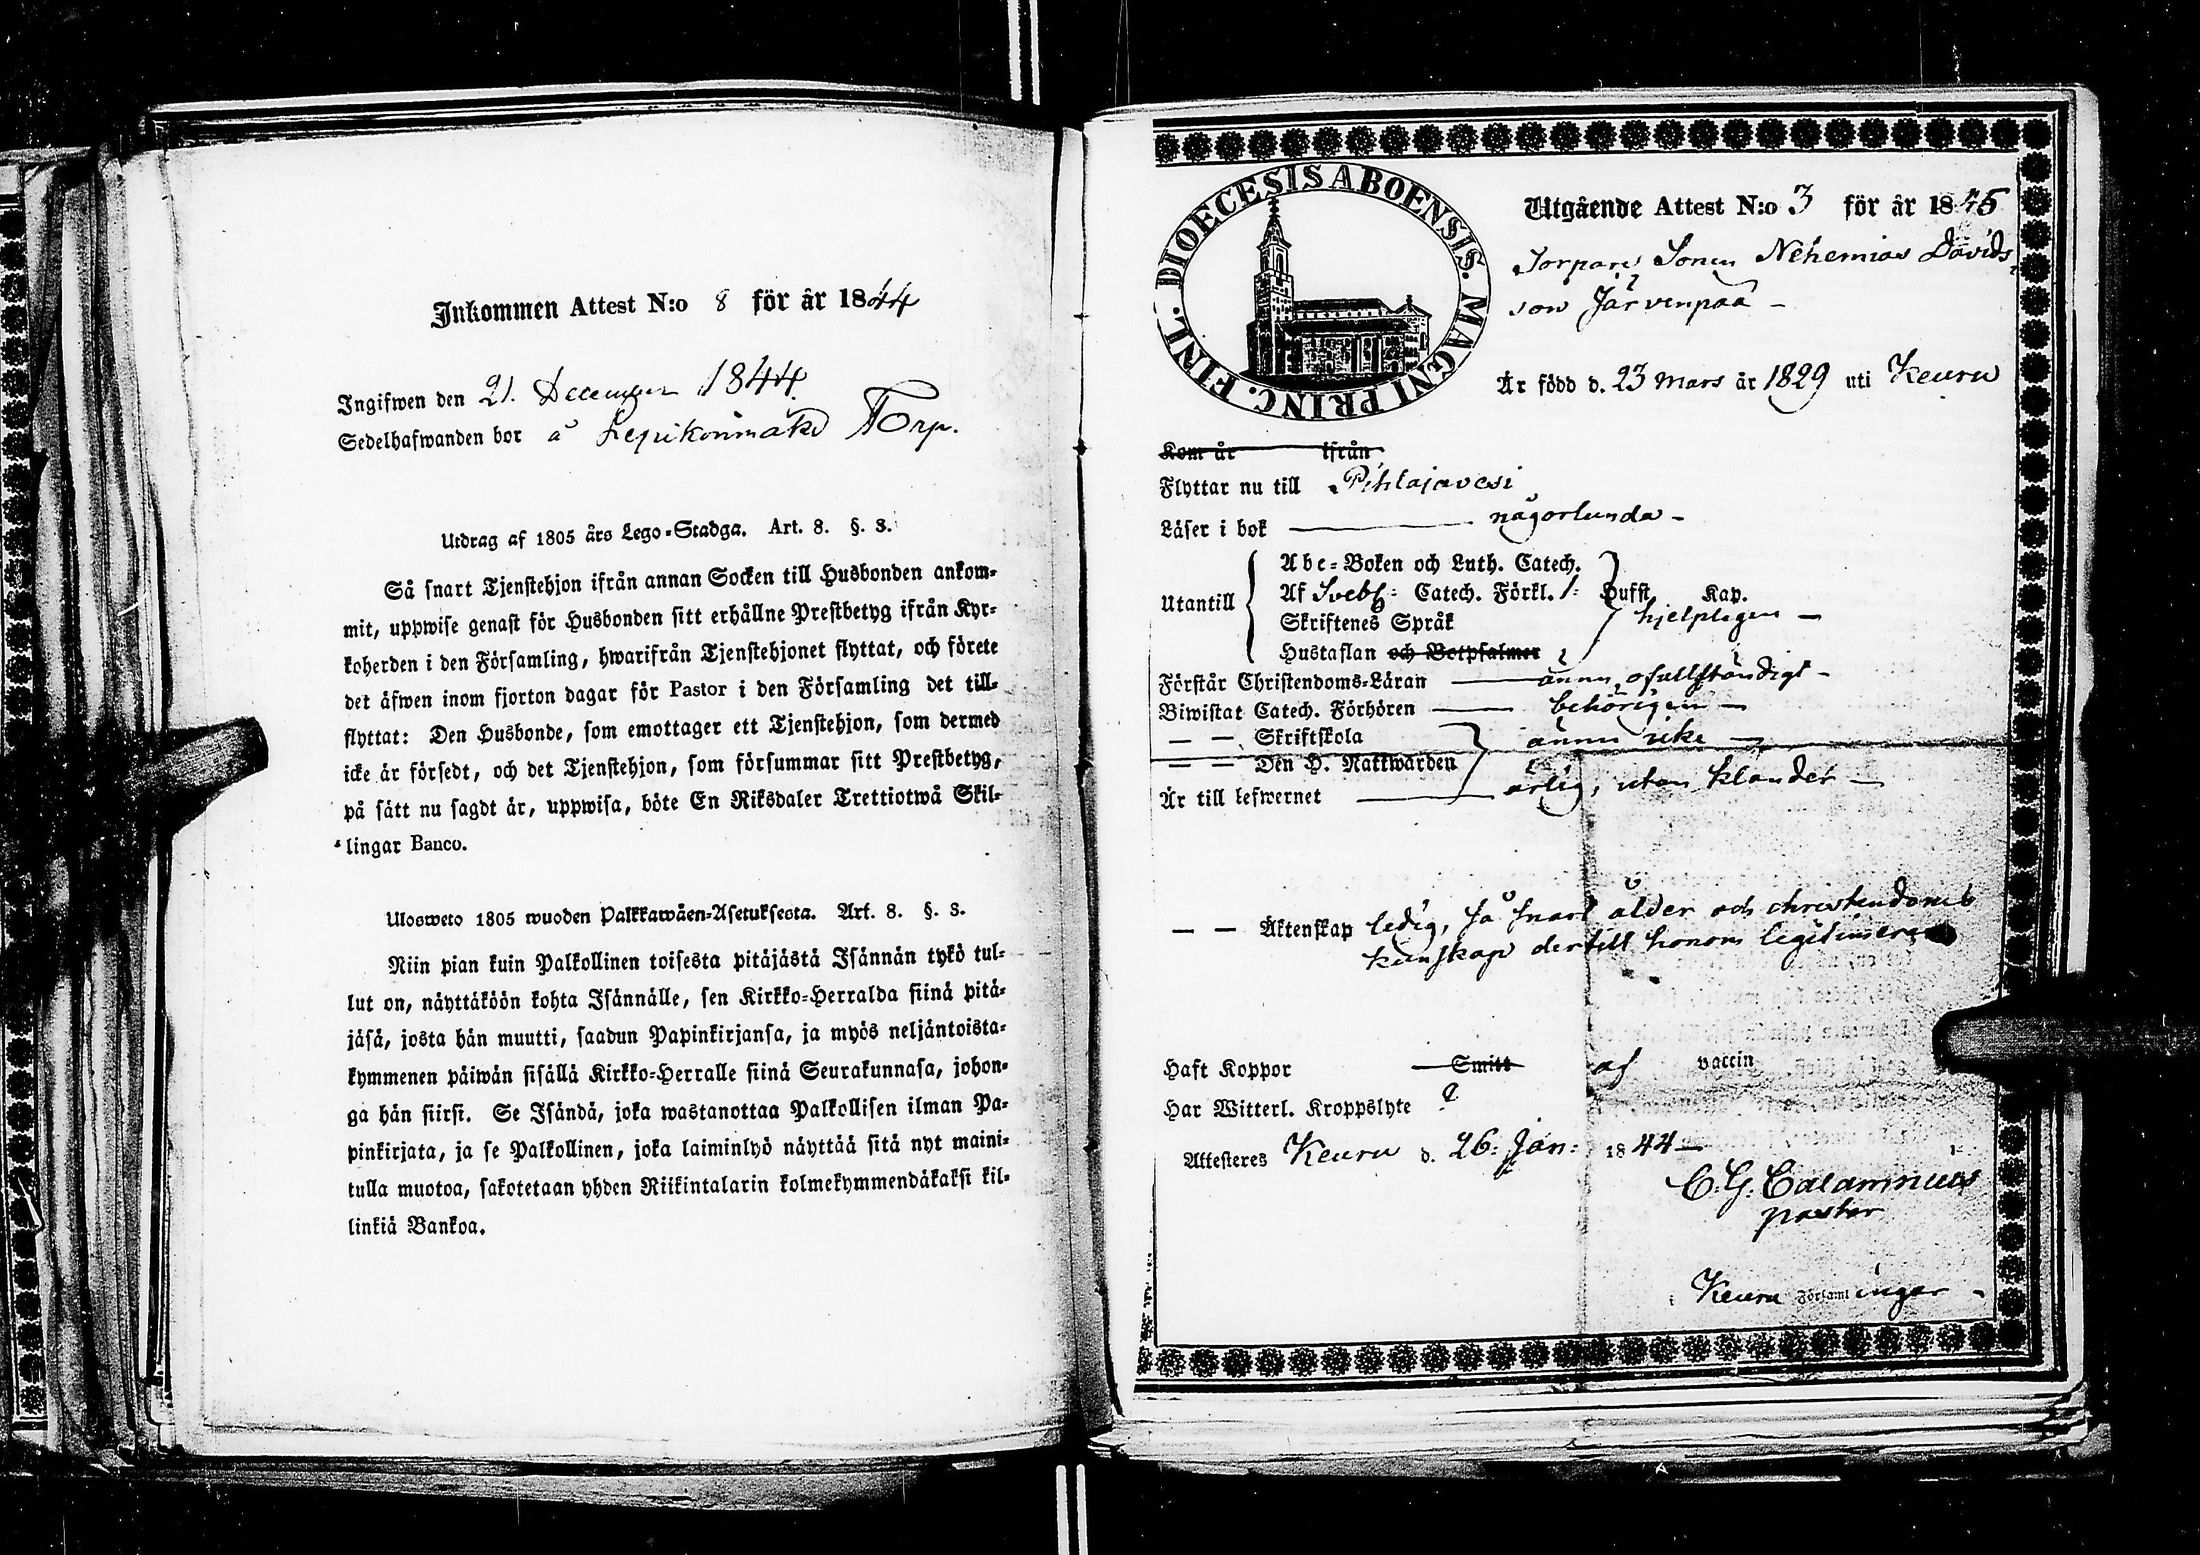 Inkommen Attest N:o 8 för år 1844
Ingifwen den 21. December 1844.
Sedelhafwanden bor å Lepikonmäki Torp.
Utdrag af 1805 års Lego-Stadga. Art. 8. §. 3.
Så snart Tjenstehjon ifrån annan Socken till Husbonden ankom-
mit, uppwise genast för Husbonden sitt erhållne Prestbetyg ifrån Kyr-
koherden i den Församling, hwarifrån Tjenstehjonet flyttat, och förete
det äfwen inom fjorton dagar för Pastor i den Församling det till-
flyttat: Den Husbonde, som emottager ett Tjenstehjon, som dermed
icke är försedt, och det Tjenstehjon, som försummar sitt Prestbetyg,
på sätt nu sagdt är, uppwisa, böte En Riksdaler Trettiotwå Skil-
lingar Banco.
Ulosweto 1805 wuoden Palkkawäen-Asetuksesta. Art. 8. §. 3.
Niin pian kuin Palkollinen toisesta pitäjästä Isännän tykö tul-
lut on, näyttäköön kohta Isännälle, sen Kirkko-Herralda siinä pitä-
jäsä, josta hän muutti, saadun Papinkirjansa, ja myös neljäntoista-
kymmenen päiwän sisällä Kirkko-Herralle siinä Seurakunnasa, johon-
ga hän siirsi. Se Isändä, joka wastanottaa Palkollisen ilman Pa-
pinkirjata, ja se Palkollinen, joka laiminlyö näyttää sitä nyt maini-
tulla muotoa, sakotetaan yhden Riikintalarin kolmekymmendäkaksi kil-
linkiä Bankoa.
DIOECESIS ABOENSIS. MAGNI PRINC. FINL.
Utgående Attest N:o 3 för år 1845
Torpare Sonen Nehemias Davids
son Järvenpää -
Är född d. 23 Mars år 1829 uti Keuru
Kom år ifrån
Flyttar nu till Pihlajavesi
Läser i bok någorlunda -
Utantill
Abc-Boken och Luth. Catech.
Af Svebel: Catech. Förkl. Kap.
Skriftenes Språk hjelpligen -
Hustaflan och Botpsalmer
Förstår Christendoms-Läran ännu ofullständigt -
Biwistat Catech. Förhören behörigen -
— — Skriftskola ännu icke -
— — Den H. Nattwarden
Är till lefwernet ärlig, utan klander -
— — Äktenskap ledig, så snart ålder och christendoms
kunskap dertill honom
Haft Koppor Smitt af vaccin
Har Witterl. Kroppslyte ?
Attesteres Keuru d. 26. Jan: 1844 -
C: G: Calamnius
pastor
i Keuru Församlingar -